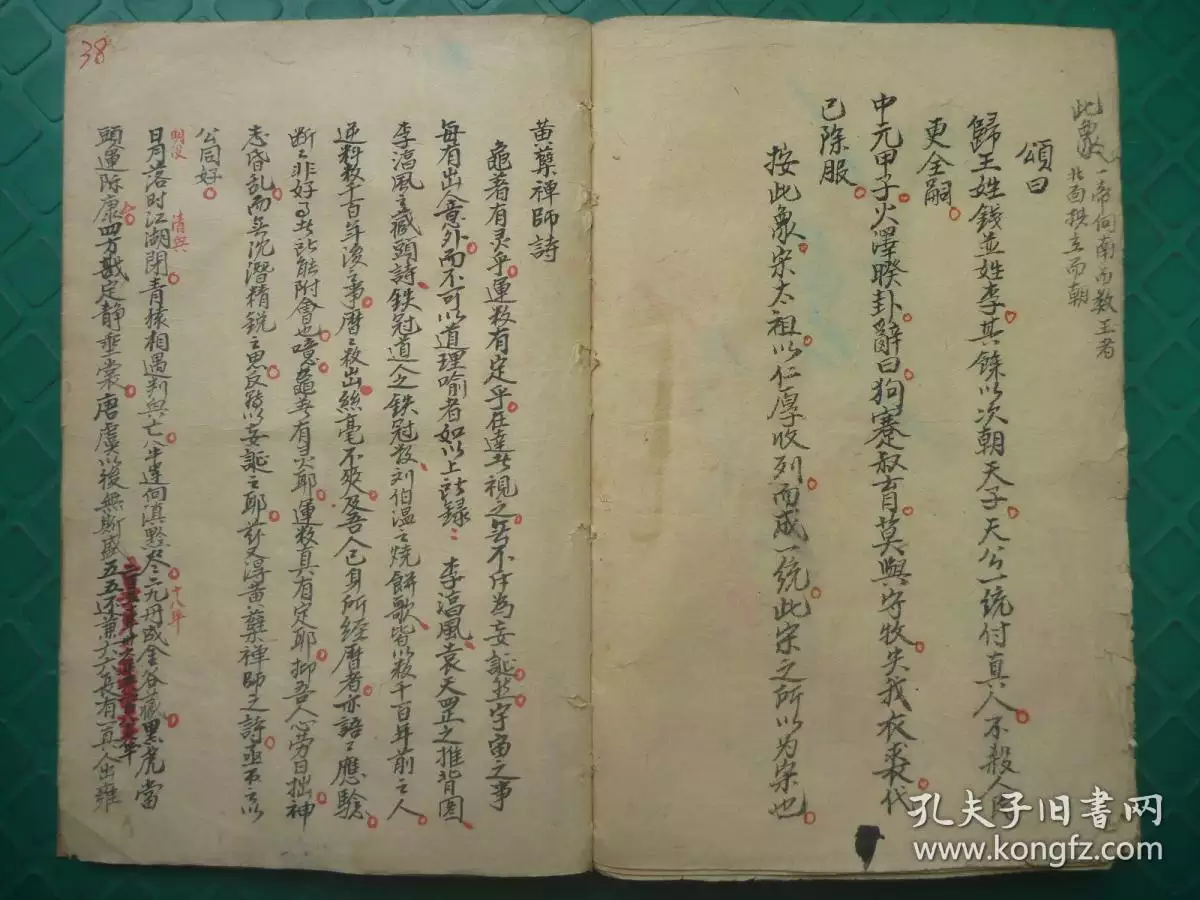 此象一帝向南面数王者
北面拱立而朝
頌曰
歸王姓錢並姓李其餘以次朝天子天公一統付真人不殺人
更全嗣
中元甲子火澤睽卦辭曰狗蹇叔肓莫與守牧失我衣裘代
已除服
按此象宋太祖以仁厚收列而成一統此宋之所以为宋也
黄蘗禅師詩
龜著有灵乎運数有定乎在達者視之無不斥為妄誕然宇宙之事
每有出人意外而不可以道理喻者如以上所録 李淳風袁天罡之推背图
李淳風之藏頭詩鉄冠道人之鉄冠数刘伯温之燒餅歌皆以数千百年前之人
逆料数千百年後之事曆々数出絲毫不爽及吾人已身所經曆者亦語々應驗
断々非好事者所能附會也噫龜著有灵耶運数真有定耶抑吾人心劳日拙神
志昏乱而無沈潛精銳之思反疑以妄誕之耶兹又得黄蘗禅師之詩亟錄以
公同好
明没
清兴
日月落时江湖閉青猿相遇判興亡八牛運向滇黔尽二九丹成金谷藏黑虎當
十八年
頭運际康四方戡定静垂裳唐虞以後無斯盛五五还兼六六長有一真人出雍
38
孔夫子旧書网
www.kongfz.com